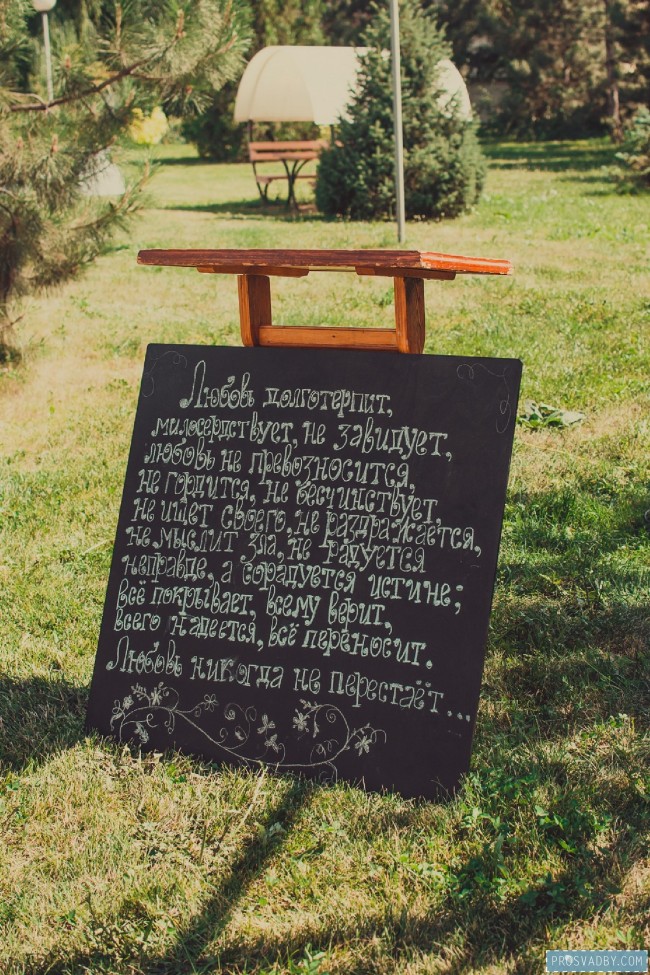 Любовь долготерпит,
милосердствует, не завидует,
любовь не превозносится,
не гордится, не бесчинствует,
не ищет своего, не раздражается,
не мыслит зла, не радуется
неправде, а сорадуется истине;
всё покрывает, всему верит,
всего надеется, всё переносит.
Любовь никогда не перестаёт...
PROSVADBY.COM